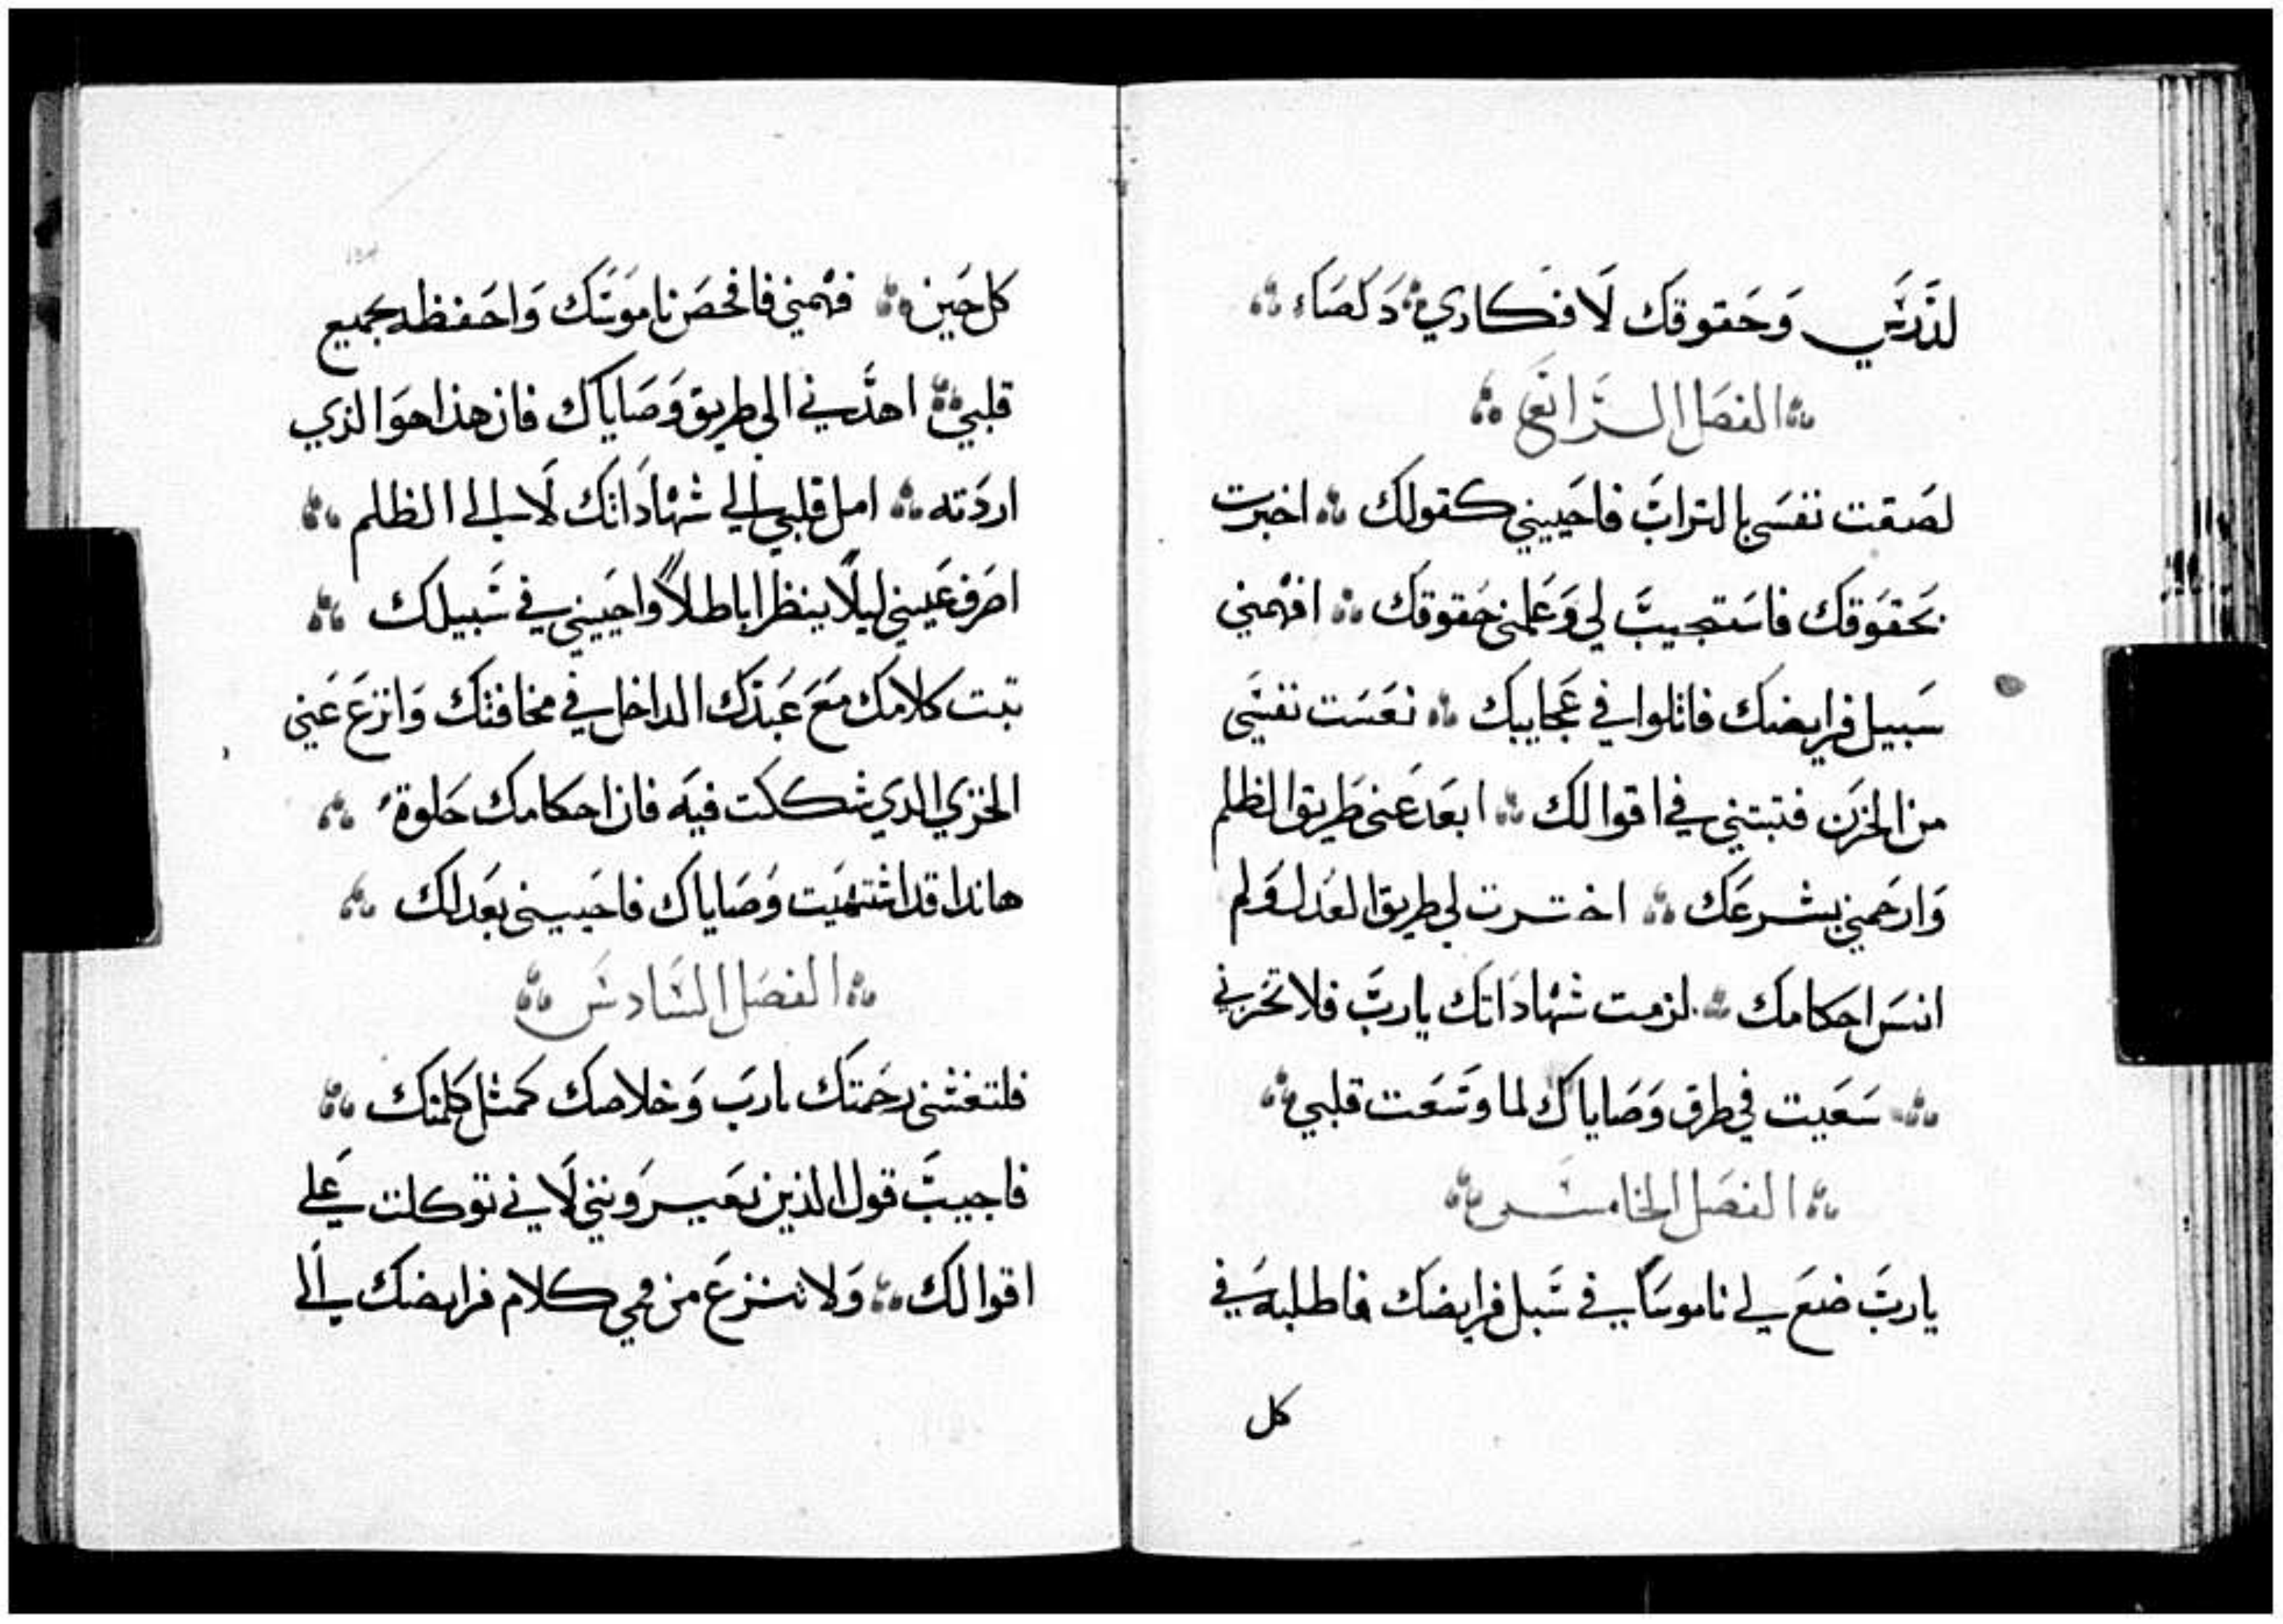 لتدرسي وحقوقك لافكاري دكصاء
الفصل الرابع
لصقت نفسي بالتراب فاحييني كقولك اخبرت
بحقوقك فاستجيب لي وعلمني حقوقك افهمني
سبيل فرايضك فاتلوا في عجايبك نعست نفسي
من الحزن فتبتني في اقوالك ابعد عني طريق الظلم
وارحمني بشرعك اخترت لي طريق العدل ولم
انس احكامك لزمت شهاداتك يارب فلا تخزني
سعيت في طرق وصاياك لما وسعت قلبي
الفصل الخامس
يارب ضع لي ناموسا في سبل فرايضك فاطلبه في
كل
كل حين فهمني فافحص ناموسك واحفظه بجميع
قلبي اهديني الى طريق وصاياك فان هذا هوا لذي
اردته امل قلبي الي شهاداتك لا الى الظلم
اصرف عيني ليلا ينظرا باطلا واحييني في سبيلك
تبت كلامك مع عبدك الداخل في مخافتك وانزع عني
الخزي الدي شككت فيه فان احكامك حلوة
هاندا قد اشتهيت وصاياك فاحييني بعدلك
الفصل السادس
فلتغشني رحمتك يارب وخلاصك كمثل كلمتك
فاجيب قول الذين يعيرونني لاني توكلت على
اقوالك ولا تنزع من فمي كلام فرايضك الى